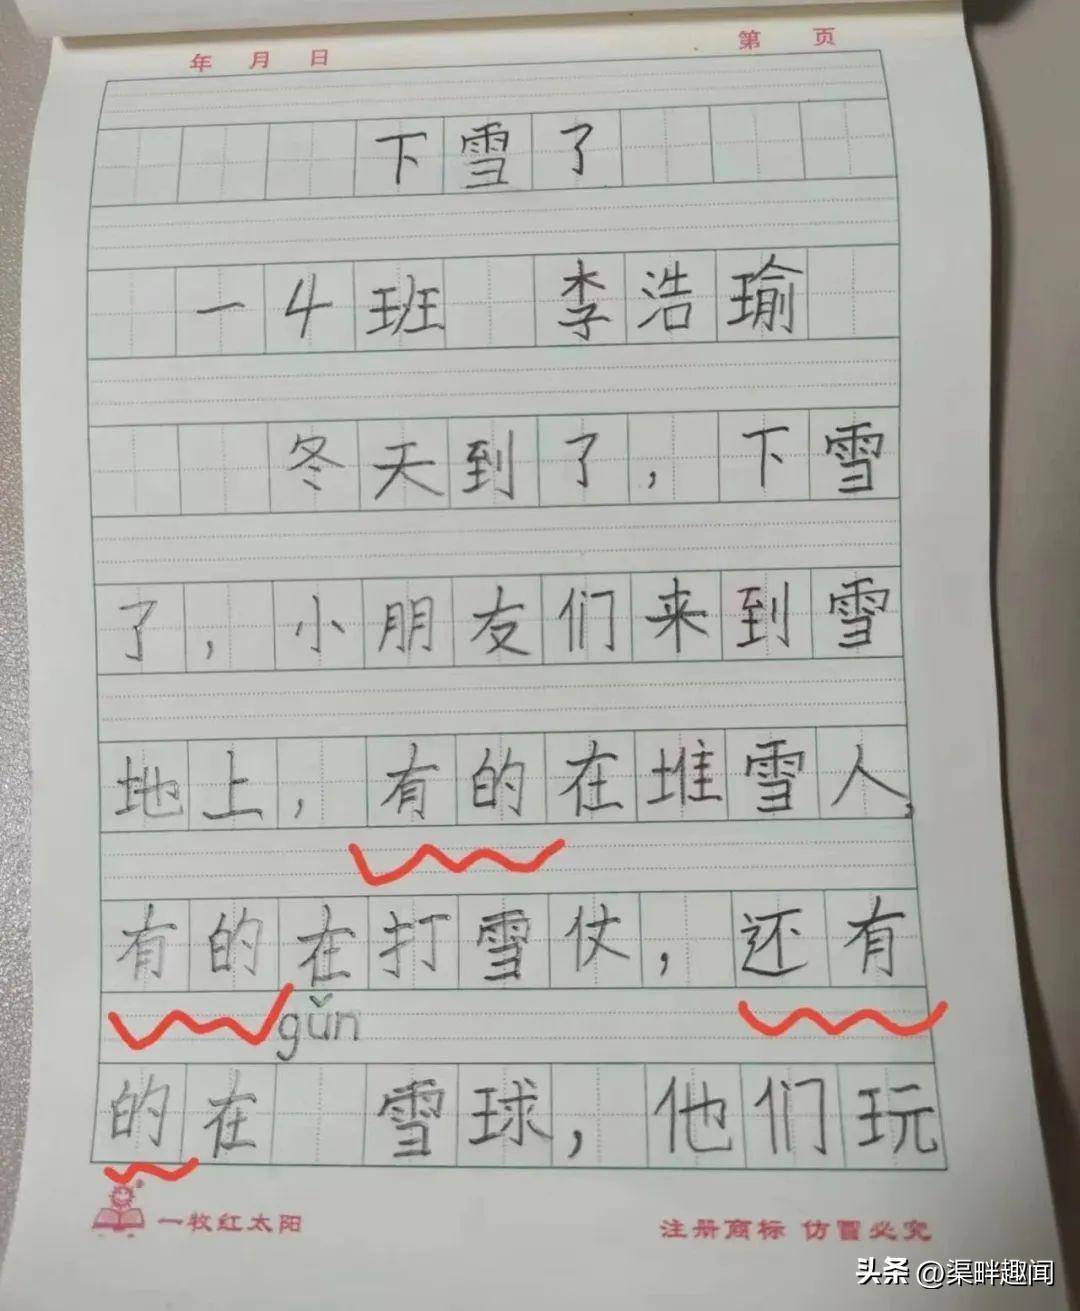 年 月 日 第 页
下雪了
一4班 李浩瑜
冬天到了，下雪
了，小朋友们来到雪
地上，有的在堆雪人，
有的在打雪仗，还有
gǔn
的在 雪球，他们玩
一牧红太阳 注册商标 仿冒必究
头条 @渠畔趣闻